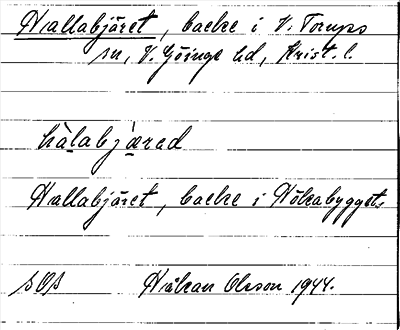 Hallabjäret, backe i V. Torups
sn, V. Göinge hd, Krist. l.
hàlabjæred
Hallabjäret, backe i Nökabyggets
Håkan Olsson 1944.